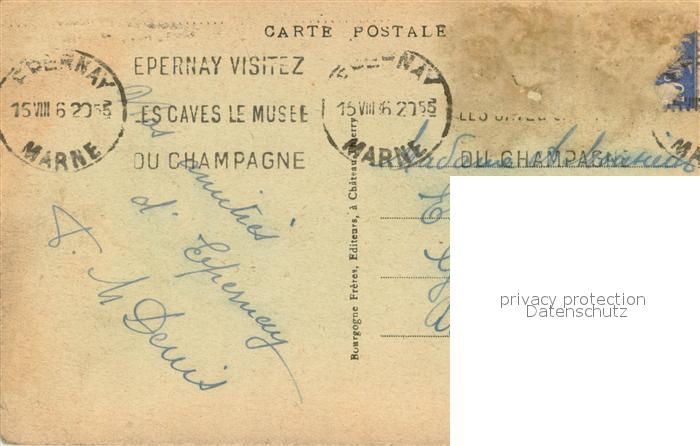 CARTE POSTALE
EPERNAY
15 VIII 6 2035
MARNE
EPERNAY VISITEZ
LES CAVES LE MUSEE
DU CHAMPAGNE
EPERNAY
15 VIII 36 2035
MARNE
DU CHAMPAGNE
MARNE
amitiés
d'Epernay
M Denis
Bourgogne Frères, Editeurs, à Château-Thierry
Madame
privacy protection
Datenschutz